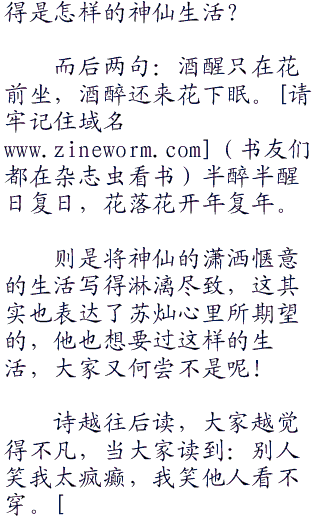 得是怎样的神仙生活？
　　而后两句：酒醒只在花
前坐，酒醉还来花下眠。[请
牢记住域名
www.zineworm.com]（书友们
都在杂志虫看书）半醉半醒
日复日，花落花开年复年。
　　则是将神仙的潇洒惬意
的生活写得淋漓尽致，这其
实也表达了苏灿心里所期望
的，他也想要过这样的生
活，大家又何尝不是呢！
　　诗越往后读，大家越觉
得不凡，当大家读到：别人
笑我太疯癫，我笑他人看不
穿。[